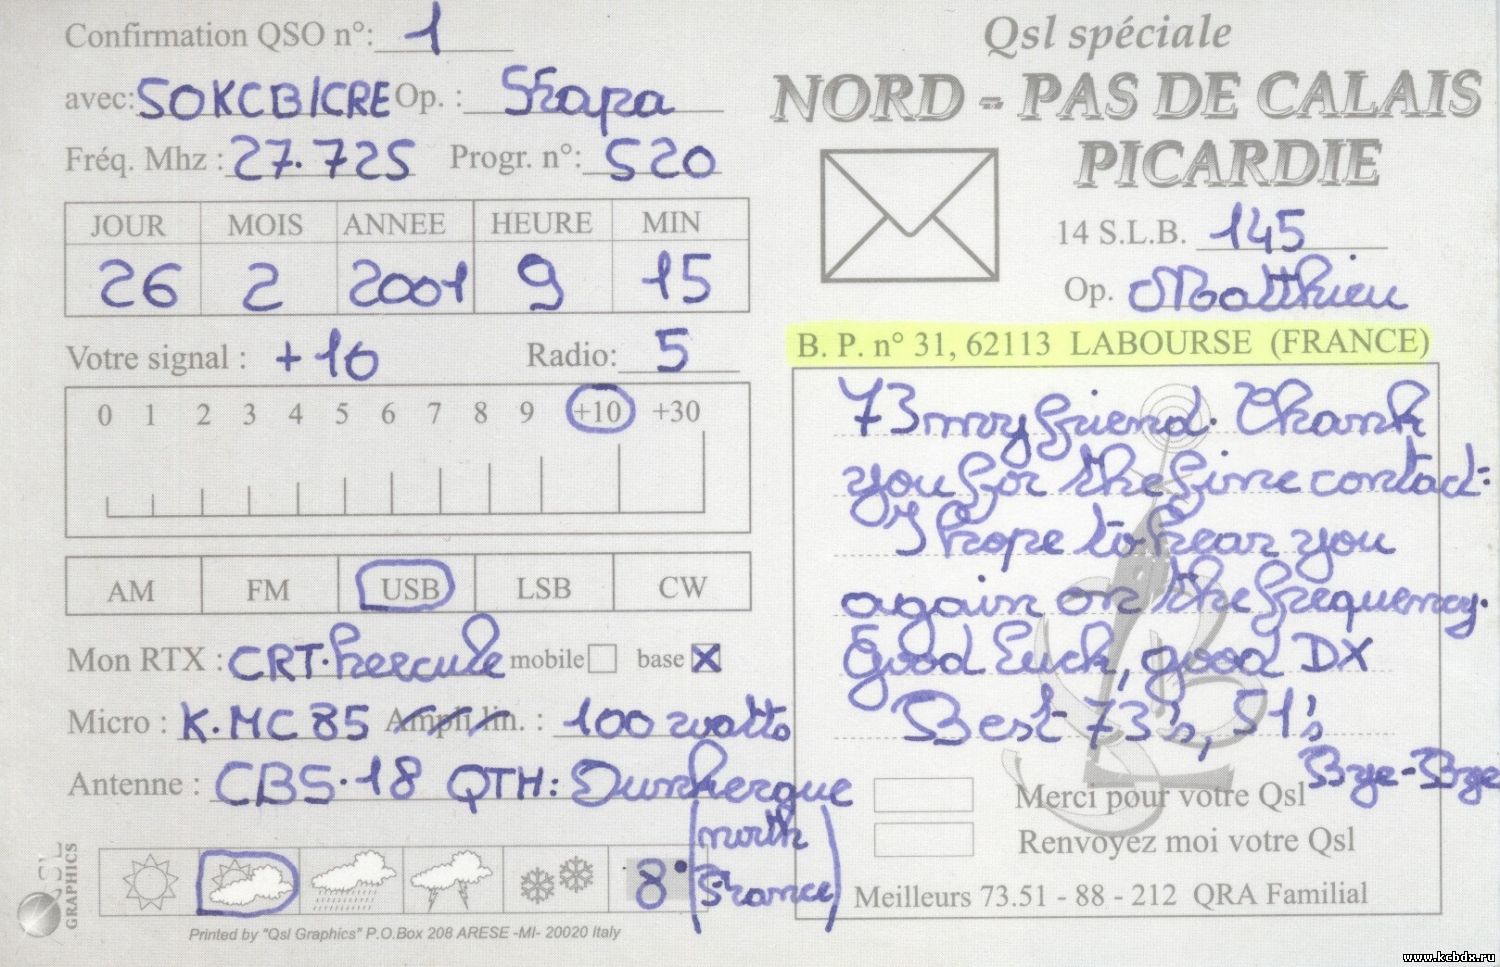 Confirmation QSO n°: 1
avec: 50KCB/CRE Op. : Stapa
Fréq. Mhz : 27.725 Progr. n°: 520
JOUR MOIS ANNEE HEURE MIN
26 2 2001 9 15
Votre signal : +10 Radio: 5
0 1 2 3 4 5 6 7 8 9 +10 +30
AM FM USB LSB CW
Mon RTX : CRT.hercule mobile base X
Micro : K.MC85 Ampli lin. : 100 watts
Antenne : CBS.18 QTH: Dunkerque
(north
France)
8°
QSL GRAPHICS
Printed by "Qsl Graphics" P.O.Box 208 ARESE -MI- 20020 Italy
Qsl spéciale
NORD - PAS DE CALAIS
PICARDIE
14 S.L.B. 145
Op. Matthieu
B. P. n° 31, 62113 LABOURSE (FRANCE)
73 my friend. Thank
you for the fine contact.
I hope to hear you
again on the frequency.
Good luck, good DX
Best 73's, 51's
Bye-Bye
Merci pour votre Qsl
Renvoyez moi votre Qsl
Meilleurs 73.51 - 88 - 212 QRA Familial
www.kcbdx.ru